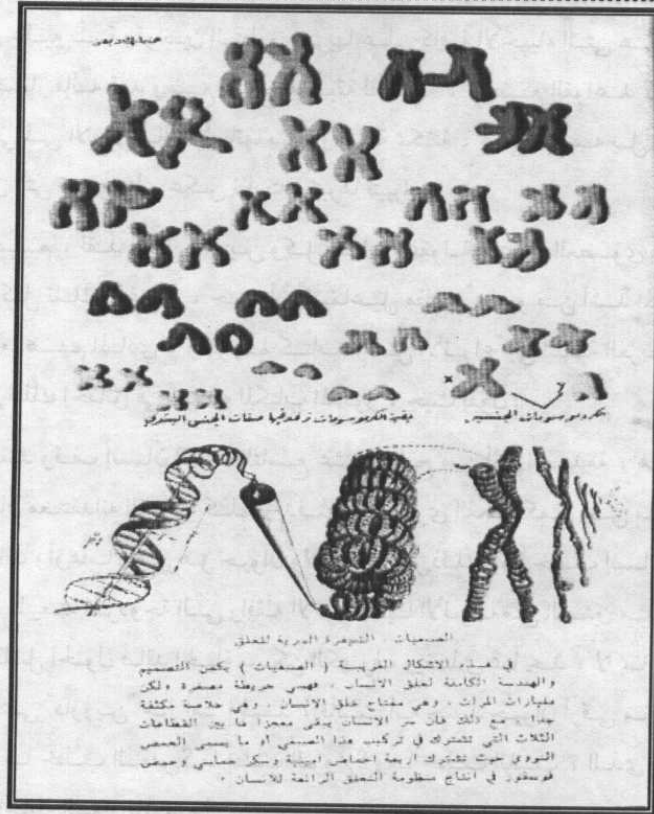 × y
بقية الكروموسومات ترقد فيها صفات الجنس البشري
كروموسومات الجنسين
الصبغيات ، الشيفرة السرية للخلق
في هذه الاشكال الغريبة ( الصبغيات ) يكمن التصميم
والهندسة الكاملة لخلق الانسان ، فهي خريطة مصغرة ولكن
مليارات المرات ، وهي مفتاح خلق الانسان ، وهي خلاصة مكثفة
جدا ، مع ذلك فان سر الانسان يبقى معجزا ما بين القطاعات
الثلاث التي تشترك في تركيب هذا الصبغي او ما يسمى بالحمض
النووي حيث تشترك اربعة احماض امينية وسكر خماسي وحمض
فوسفور في انتاج منظومة الخلق الرائعة للانسان .